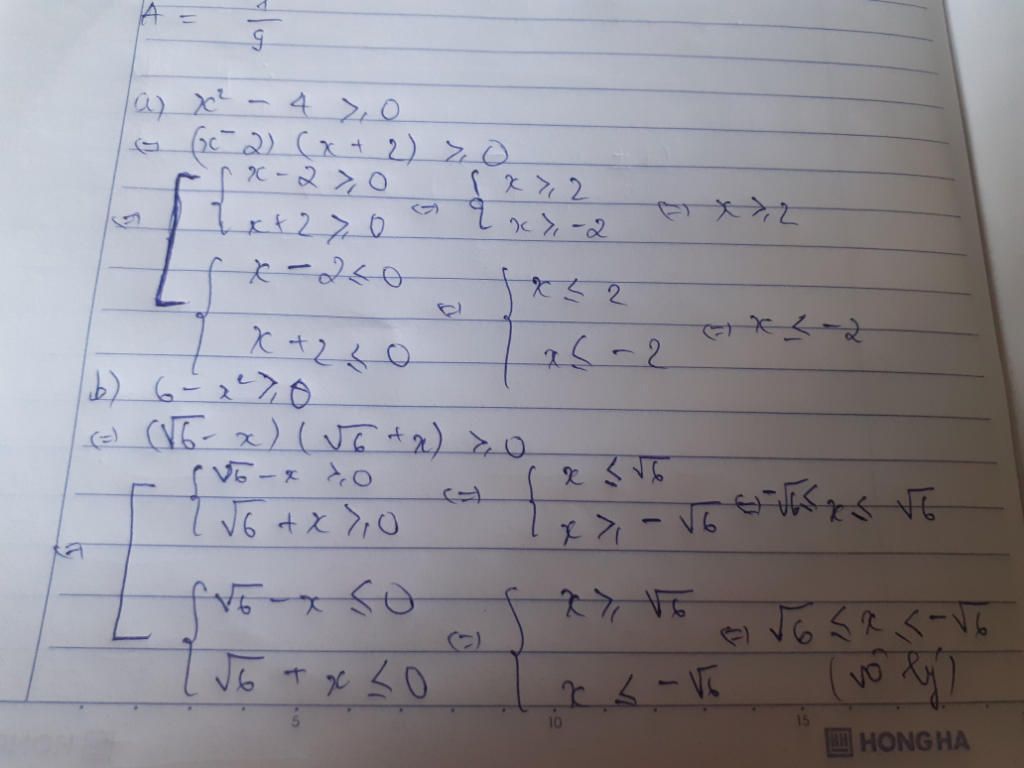 A = 1/9
a) x² - 4 ≥ 0
⇔ (x - 2) (x + 2) ≥ 0
⇔ [ { x - 2 ≥ 0 ⇔ { x ≥ 2 ⇔ x ≥ 2
x + 2 ≥ 0 x ≥ -2
{ x - 2 ≤ 0 ⇔ { x ≤ 2 ⇔ x ≤ -2
x + 2 ≤ 0 x ≤ -2
b) 6 - x² ≥ 0
⇔ (√6 - x) (√6 + x) ≥ 0
⇔ [ { √6 - x ≥ 0 ⇔ { x ≤ √6 ⇔ -√6 ≤ x ≤ √6
√6 + x ≥ 0 x ≥ -√6
{ √6 - x ≤ 0 ⇔ { x ≥ √6 ⇔ √6 ≤ x ≤ -√6
√6 + x ≤ 0 x ≤ -√6 (vô lý)
5 10 15
HONG HA